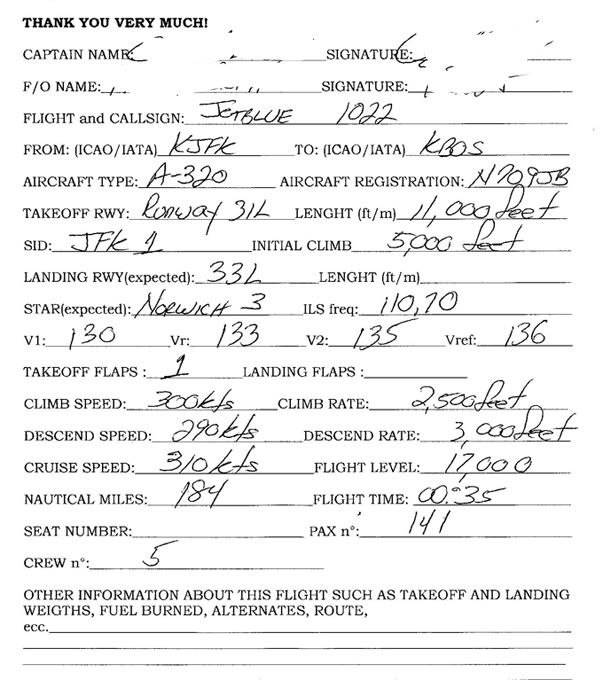 THANK YOU VERY MUCH!
CAPTAIN NAME: SIGNATURE:
F/O NAME: SIGNATURE:
FLIGHT and CALLSIGN: JETBLUE 1022
FROM: (ICAO/IATA) KJFK TO: (ICAO/IATA) KBOS
AIRCRAFT TYPE: A-320 AIRCRAFT REGISTRATION: N709JB
TAKEOFF RWY: Runway 31L LENGHT (ft/m) 11,000 feet
SID: JFK 1 INITIAL CLIMB 5,000 feet
LANDING RWY(expected): 33L LENGHT (ft/m)
STAR(expected): NORWICH 3 ILS freq: 110,70
V1: 130 Vr: 133 V2: 135 Vref: 136
TAKEOFF FLAPS : 1 LANDING FLAPS :
CLIMB SPEED: 300kts CLIMB RATE: 2,500 feet
DESCEND SPEED: 290 kts DESCEND RATE: 3,000 feet
CRUISE SPEED: 310 kts FLIGHT LEVEL: 17000
NAUTICAL MILES: 184 FLIGHT TIME: 00:35
SEAT NUMBER: PAX n°: 141
CREW n°: 5
OTHER INFORMATION ABOUT THIS FLIGHT SUCH AS TAKEOFF AND LANDING
WEIGTHS, FUEL BURNED, ALTERNATES, ROUTE,
ecc.